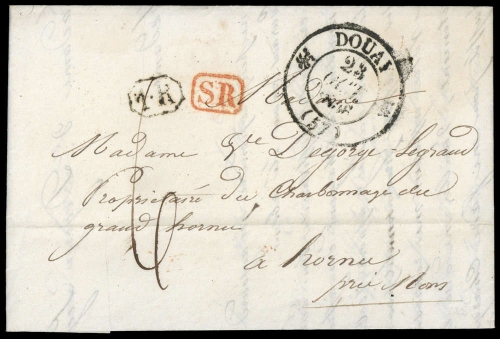 DOUAI
23
(57)
T.R
SR
Madame Vve Degorge-Legrand
Propriétaire du Charbonnage du
grand hornu
6
a hornu
près Mons